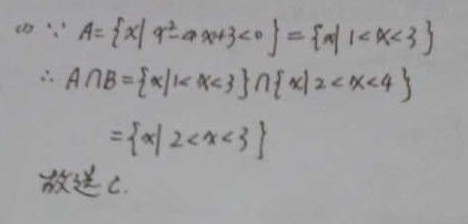 (1) ∵ A={x|x²-4x+3<0}={x|1<x<3}
∴ A∩B={x|1<x<3}∩{x|2<x<4}
={x|2<x<3}
故选C.